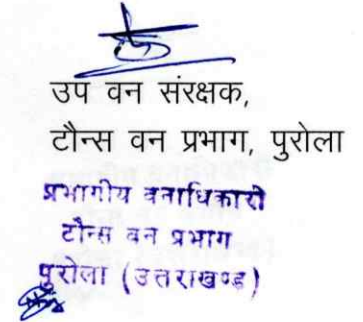 उप वन संरक्षक,
टौन्स वन प्रभाग, पुरोला
प्रभागीय वनाधिकारी
टौन्स वन प्रभाग
पुरोला (उत्तराखण्ड)